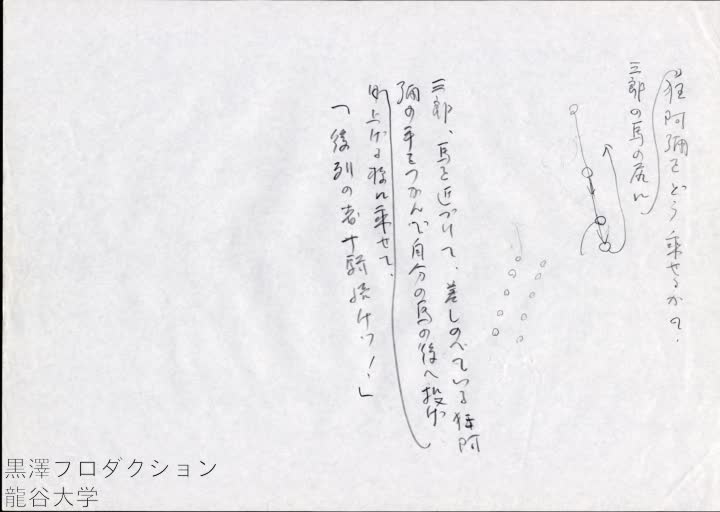 狂阿彌をどう乗せるかの.
三郎の馬の尻に
三郎、馬を近づけて、差しのべている狂阿
彌の手をつかんで自分の馬の後へ投げ
上げる様に乗せて、
「後列の者十騎続けッ!」
黒澤プロダクション
龍谷大学